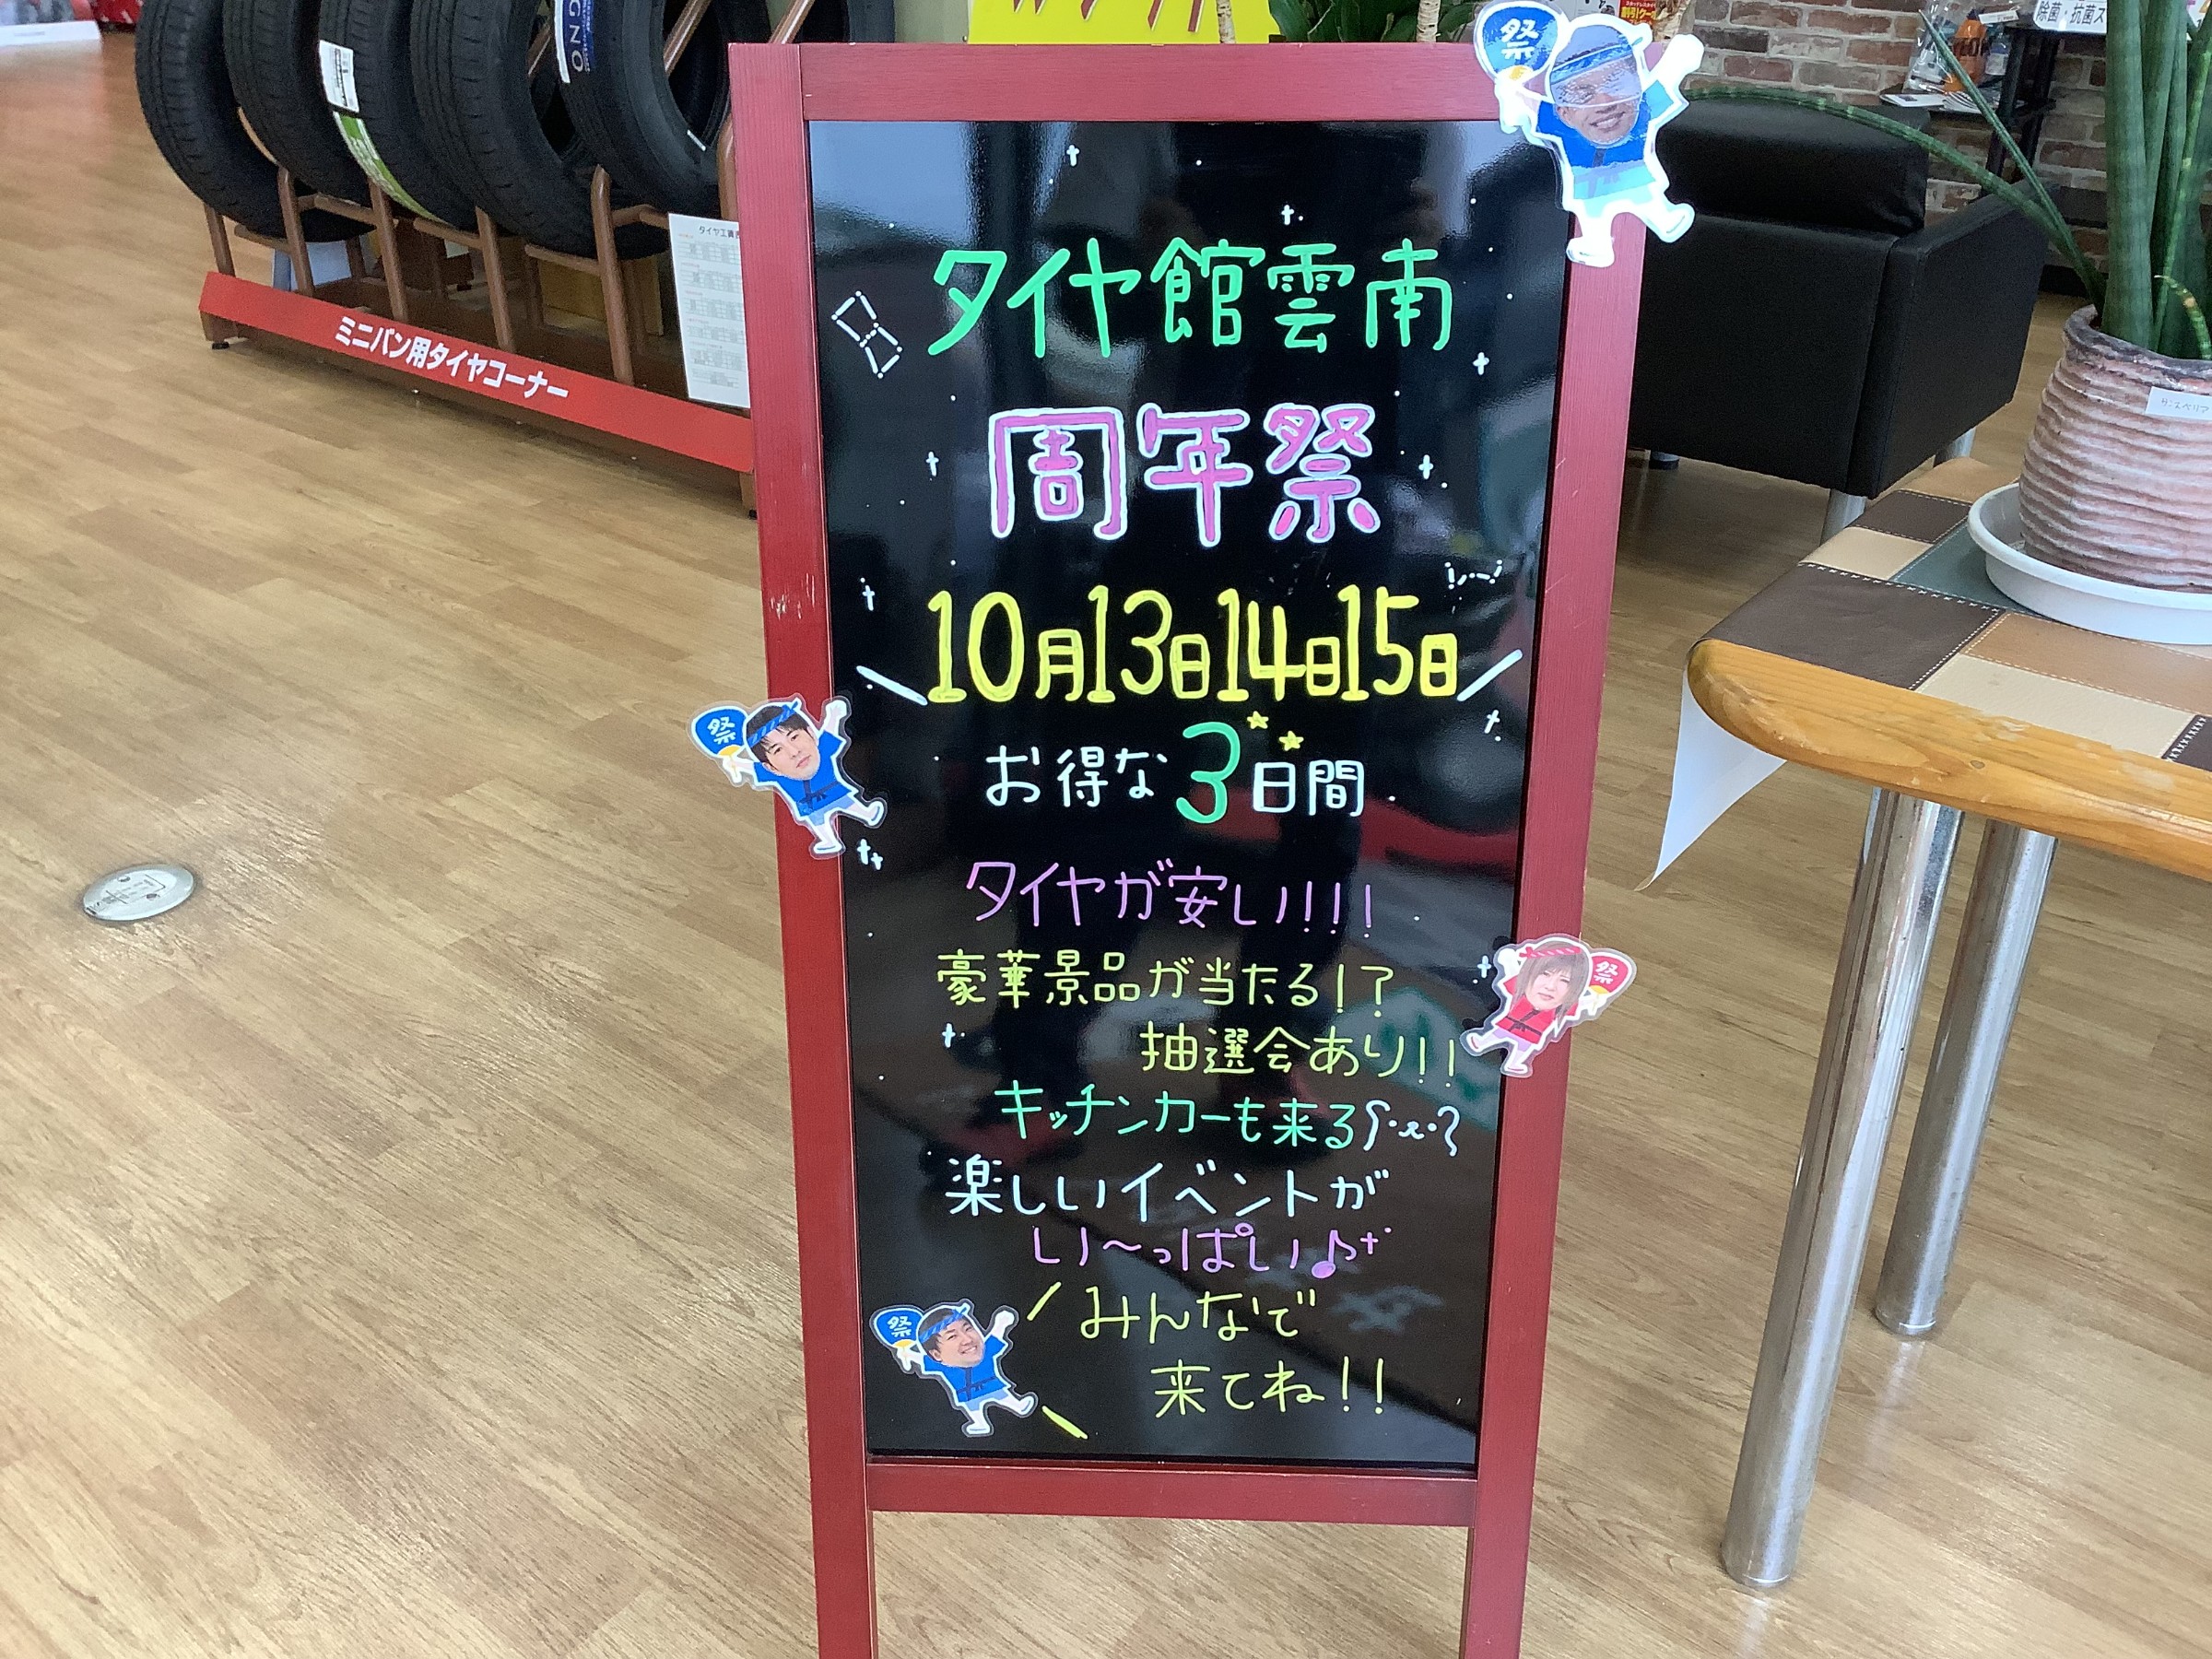 タイヤ館雲南
周年祭
10月13日14日15日
お得な3日間
タイヤが安い!!!
豪華景品が当たる!?
抽選会あり!!
キッチンカーも来る
楽しいイベントが
い～っぱい♪
みんなで
来てね!!
祭
祭
祭
祭
ミニバン用タイヤコーナー
GNO
除菌・抗菌ス
サンスベリア